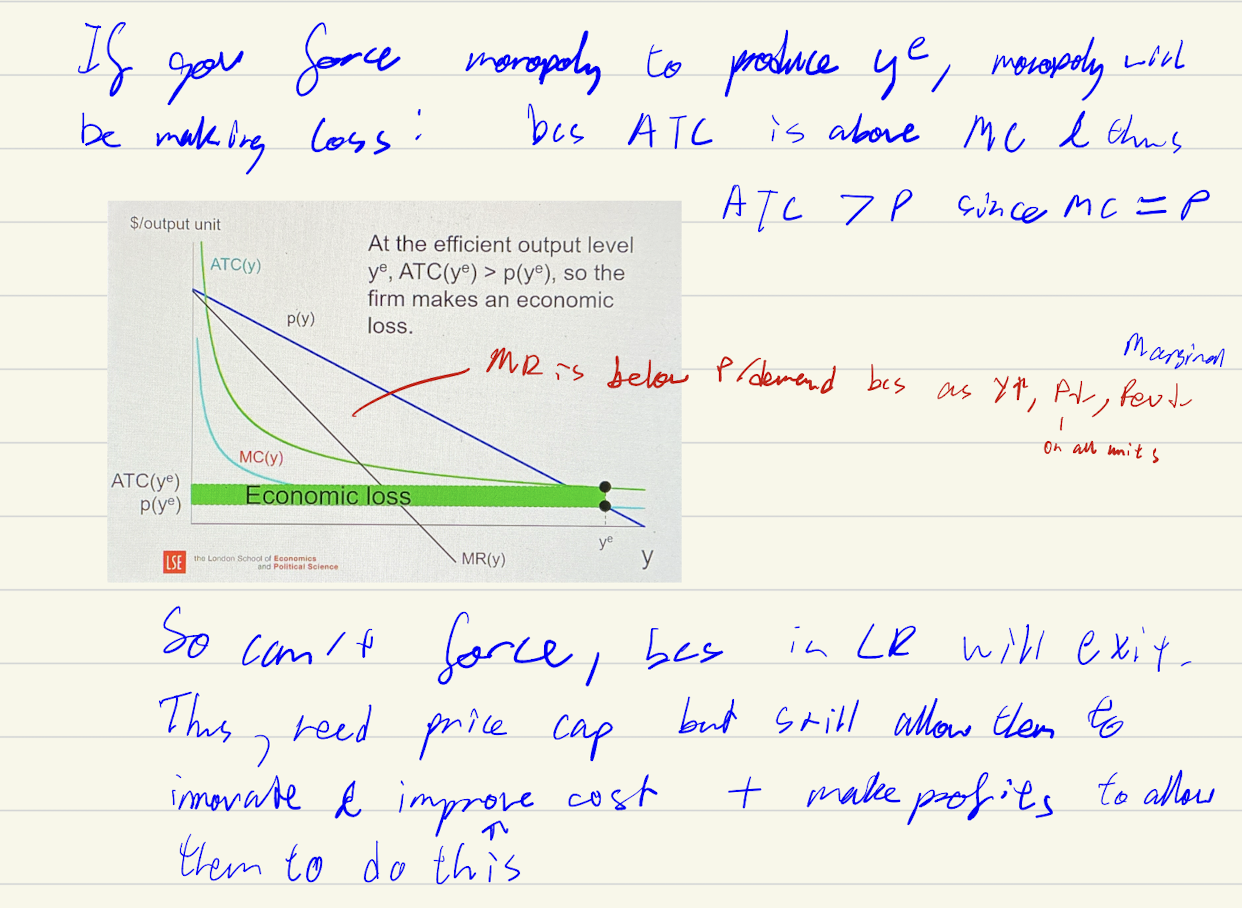 If gov force monopoly to produce yᵉ, monopoly will
be making loss: bcs ATC is above MC & thus
ATC > P since MC = P
$/output unit
ATC(y)
At the efficient output level
yᵉ, ATC(yᵉ) > p(yᵉ), so the
firm makes an economic
loss.
p(y)
Marginal
MR is below P/demand bcs as y↑, P↓, Rev↓
on all units
MC(y)
ATC(yᵉ)
p(yᵉ)
Economic loss
yᵉ
y
MR(y)
LSE the London School of Economics
and Political Science
So can't force, bcs in LR will exit.
Thus, need price cap but still allow them to
innovate & improve cost + make profits to allow
them to do this ↑